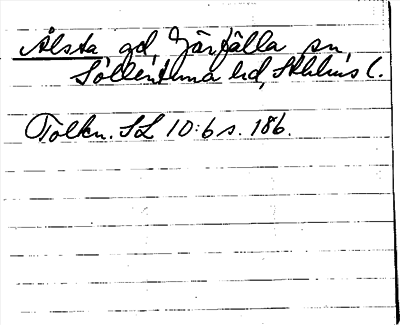 Ålsta gd, Järfälla sn,
Sollentuna hd, Sthlms l.
Tolkn. SL 10:6 s. 186.